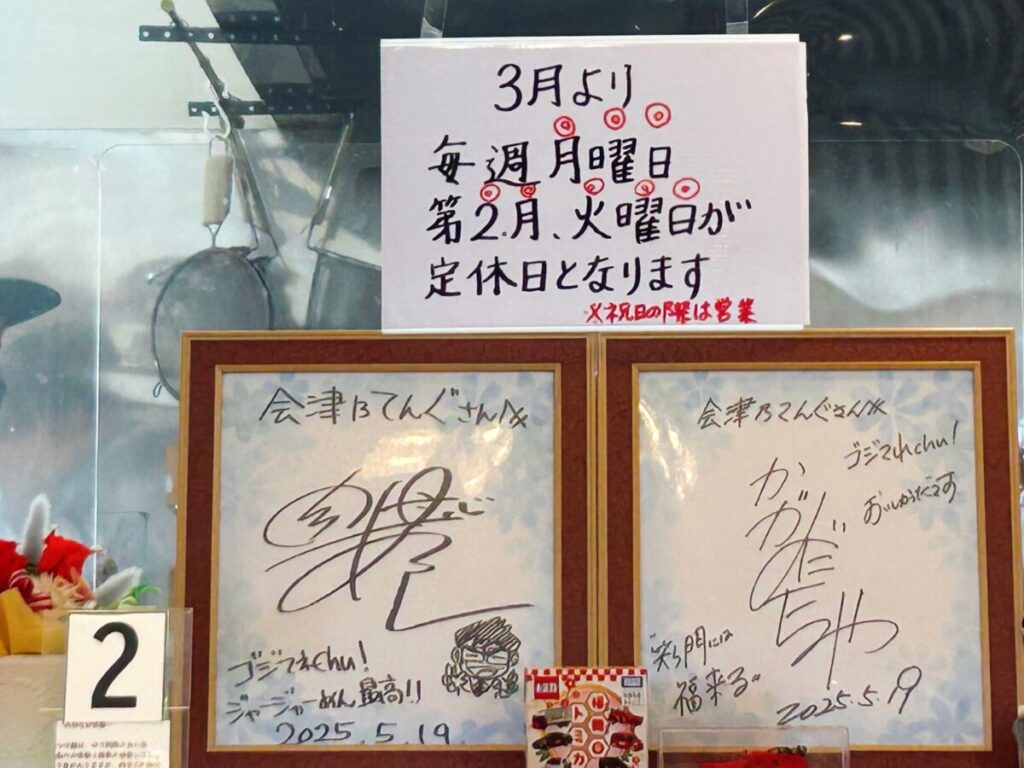 3月より
毎週月曜日
第2.月、火曜日が
定休日となります
※祝日の際は営業
会津乃てんぐさん江
ゴジてれChu!
ジャージャーめん最高!!
2025.5.19.
会津乃てんぐさん江
ゴジてれChu!
おいしゅうございます
かがだちゃ
"笑う門には
福来る"
2025.5.19
2
トミカ